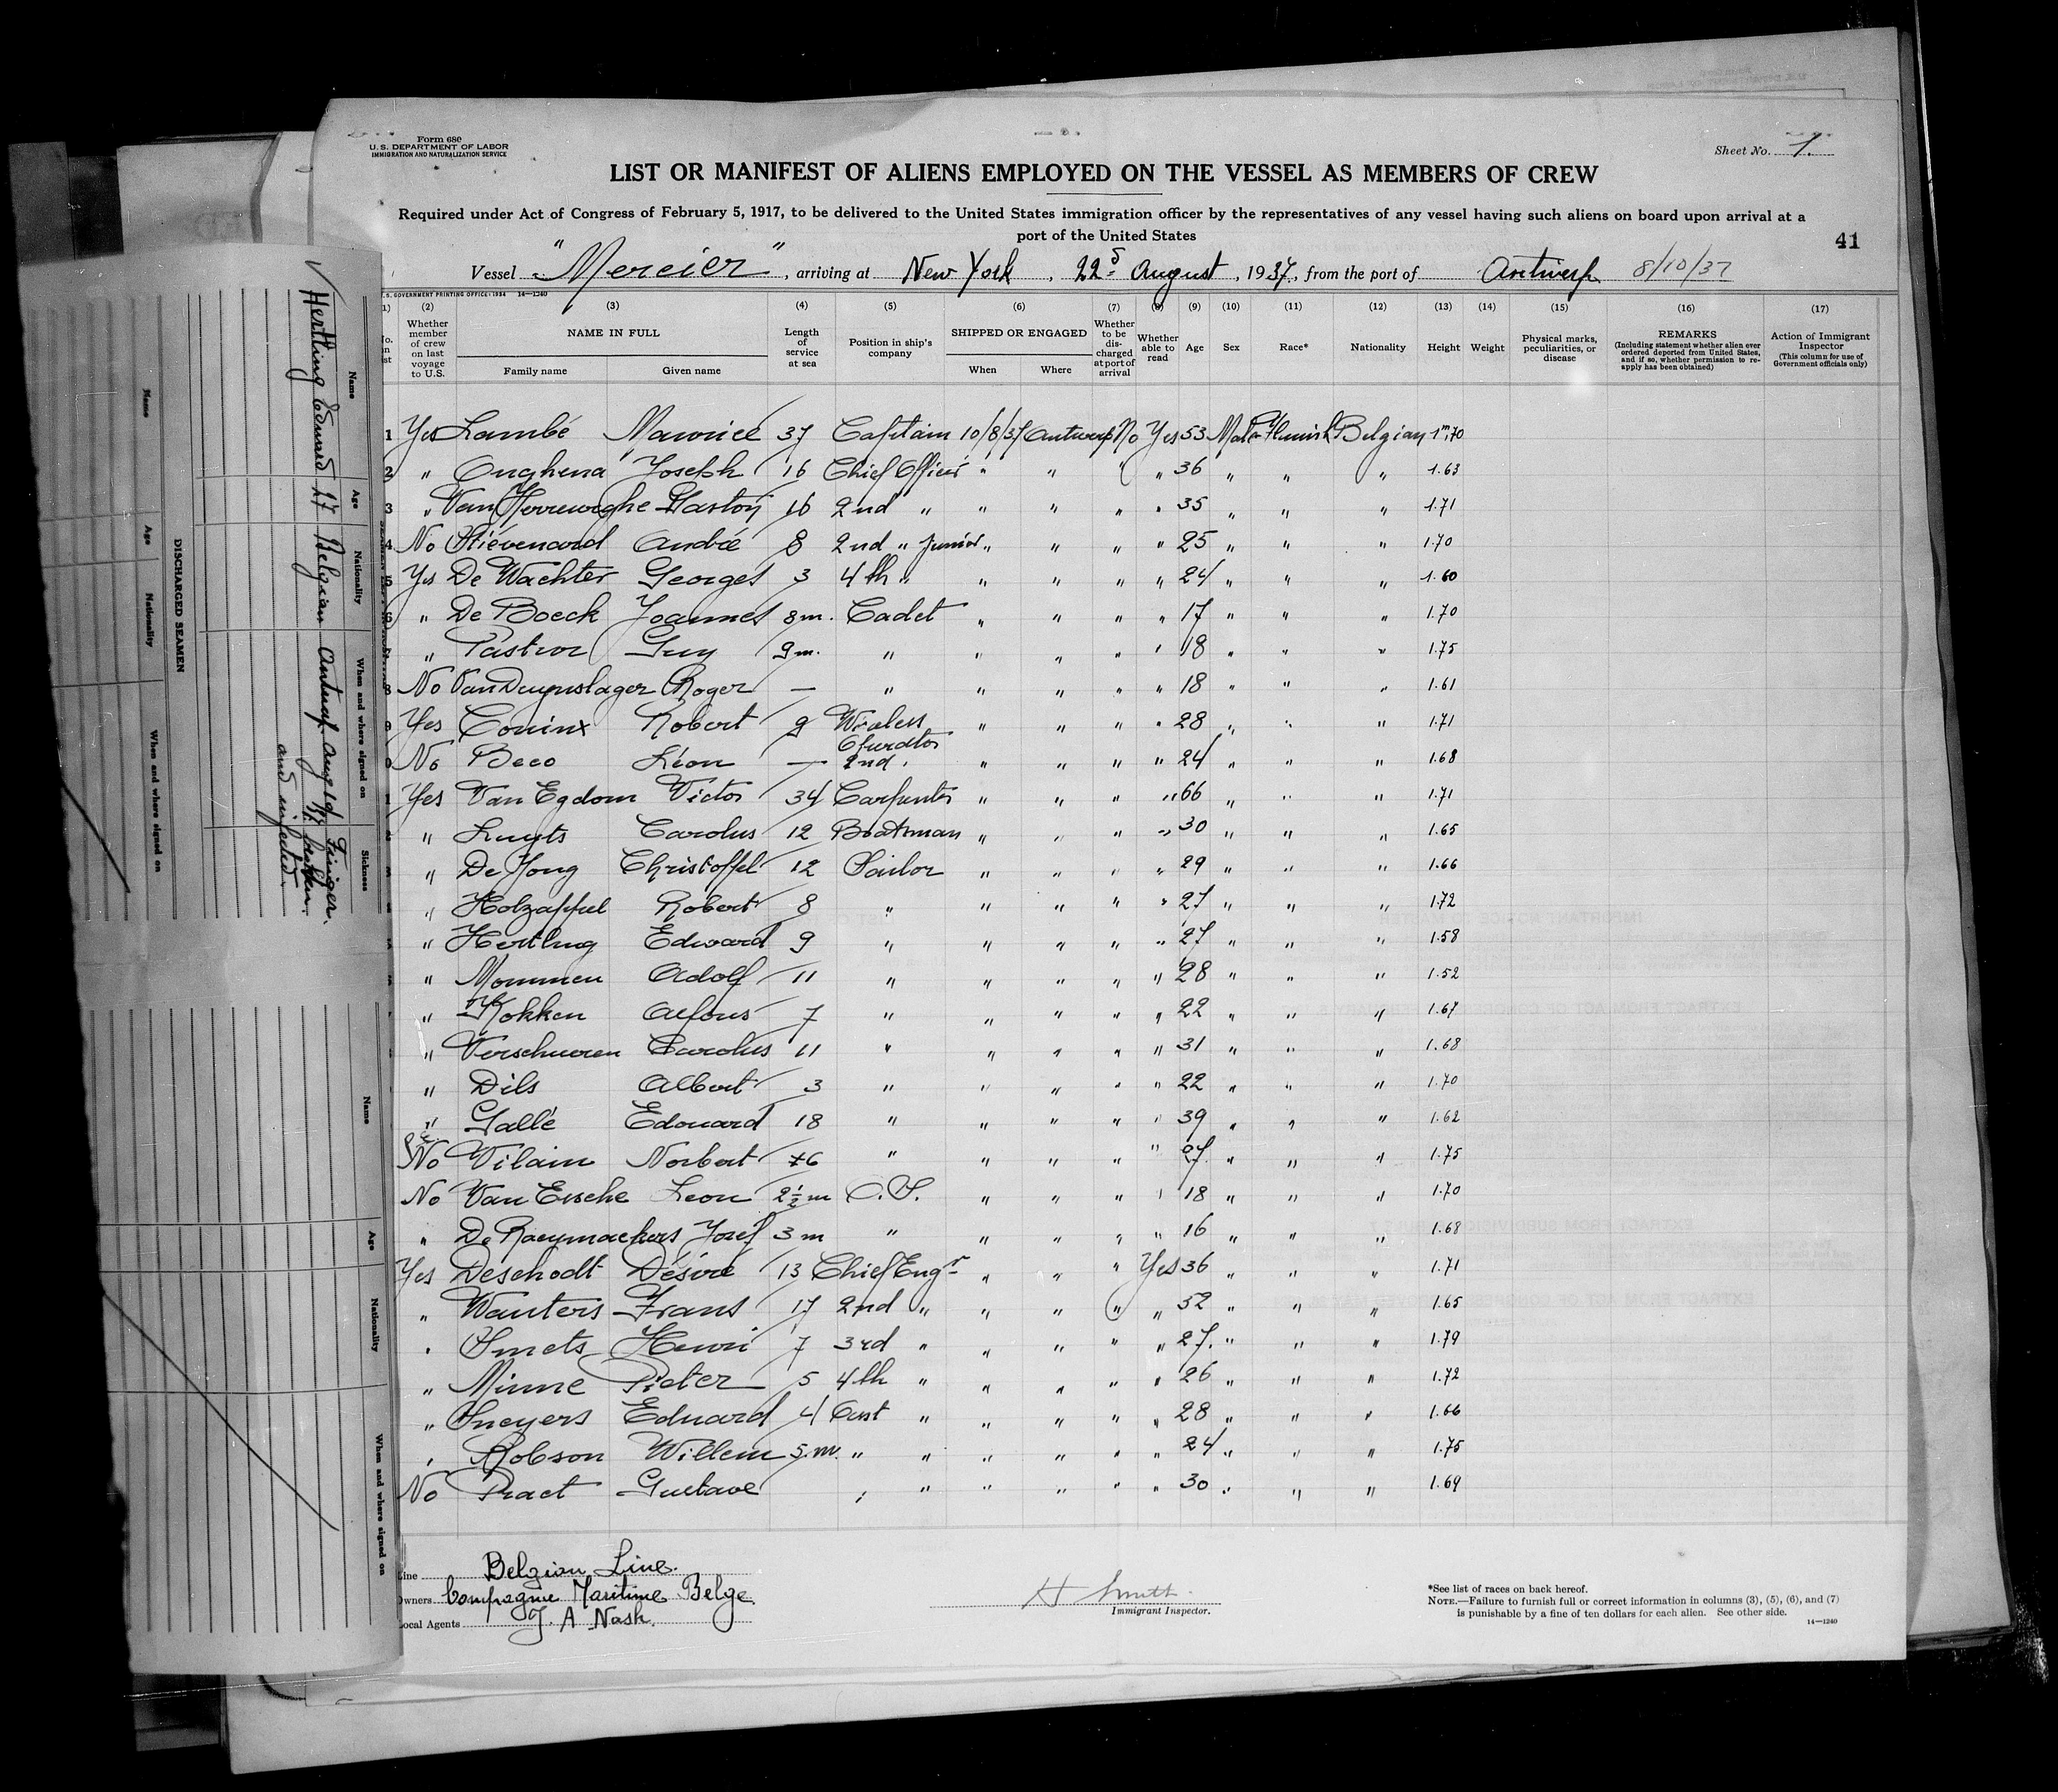 Form 680
U.S. DEPARTMENT OF LABOR
IMMIGRATION AND NATURALIZATION SERVICE
Sheet No. 1.
LIST OR MANIFEST OF ALIENS EMPLOYED ON THE VESSEL AS MEMBERS OF CREW
Required under Act of Congress of February 5, 1917, to be delivered to the United States immigration officer by the representatives of any vessel having such aliens on board upon arrival at a
port of the United States
41
Vessel "Mercier", arriving at New York, 22d August, 1937, from the port of Antwerp 8/10/37
U.S. GOVERNMENT PRINTING OFFICE: 1934 14—1240
(1) (2) (3) (4) (5) (6) (7) (8) (9) (10) (11) (12) (13) (14) (15) (16) (17)
Whether member of crew on last voyage to U.S.
NAME IN FULL
Family name Given name
Length of service at sea
Position in ship's company
SHIPPED OR ENGAGED
When Where
Whether to be discharged at port of arrival
Whether able to read
Age Sex Race* Nationality Height Weight
Physical marks, peculiarities, or disease
REMARKS
(Including statement whether alien ever ordered deported from United States, and if so, whether permission to reapply has been obtained)
Action of Immigrant Inspector
(This column for use of Government officials only)
1 Yes Lambé Maurice 37 Capitain 10/8/37 Antwerp No Yes 53 Male Flemish Belgian 1m,70
2 " Onghena Joseph 16 Chief Officer " " " " 36 " " " 1.63
3 " Van Herreweghe Gaston 16 2nd " " " " " 35 " " " 1.71
4 No Stiévenard André 8 2nd " Junior " " " " 25 " " " 1.70
5 Yes De Wachter Georges 3 4th " " " " " 24 " " " 1.60
6 " De Boeck Joannes 8m. Cadet " " " " 17 " " " 1.70
" Pastuor Guy 9m. " " " " " 18 " " " 1.75
8 No Van Duynslager Roger — " " " " " 18 " " " 1.61
9 Yes Coninx Robert 9 Wireless Operator " " " " 28 " " " 1.71
0 No Beco Léon — 2nd " " " " " 24 " " " 1.68
1 Yes Van Egdom Victor 34 Carpenter " " " " 66 " " " 1.71
2 " Luyts Carolus 12 Boatsman " " " " 30 " " " 1.65
3 " De Jong Christoffel 12 Sailor " " " " 29 " " " 1.66
" Holzapfel Robert 8 " " " " " 27 " " " 1.72
" Hertling Edward 9 " " " " " 27 " " " 1.58
" Mommen Adolf 11 " " " " " 28 " " " 1.52
" Kokken Alfons 7 " " " " " 22 " " " 1.67
" Verschueren Carolus 11 " " " " " 31 " " " 1.68
" Dils Albert 3 " " " " " 22 " " " 1.70
" Gallé Edouard 18 " " " " " 39 " " " 1.62
No Vilain Norbert 6 " " " " " 27 " " " 1.75
No Van Essche Leon 2½ m O.S. " " " " 18 " " " 1.70
" De Raeymaekers Josef 3 m " " " " " 16 " " " 1.68
Yes Deschodt Désiré 13 Chief Engr " " " Yes 36 " " " 1.71
" Wauters Frans 17 2nd " " " " " 52 " " " 1.65
" Smets Henri 7 3rd " " " " " 27 " " " 1.79
" Minne Pieter 5 4th " " " " " 26 " " " 1.72
" Sneyers Eduard 4 Asst " " " " " 28 " " " 1.66
" Robson Willem 5 m. " " " " " " 24 " " " 1.75
No Praet Gustave " " " " " " 30 " " " 1.69
Line Belgian Line.
Owners Compagnie Maritime Belge
Local Agents J. A Nash.
H Smith
Immigrant Inspector.
*See list of races on back hereof.
NOTE.—Failure to furnish full or correct information in columns (3), (5), (6), and (7)
is punishable by a fine of ten dollars for each alien. See other side.
14—1240
DISCHARGED SEAMEN
Name Age Nationality When and where signed on
Name Age Nationality When and where signed on Sickness
Hertling Edward 27 Belgian Antwerp Finger
and infected.
Name Age Nationality When and where signed on